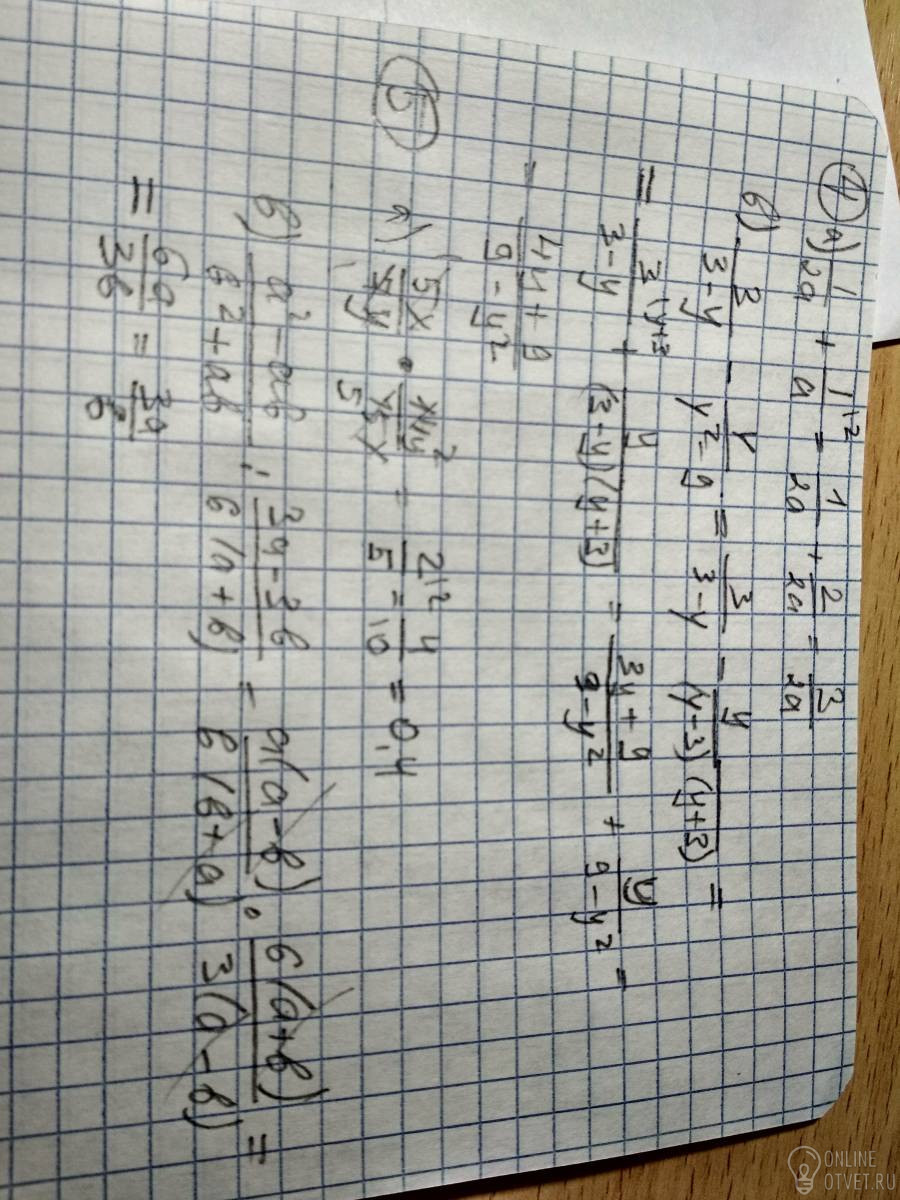 ④ а) 1/2a + 1/a |·2 = 1/2a + 2/2a = 3/2a
б) 3/(3-y) - y/(y²-9) = 3/(3-y) - y/((y-3)(y+3)) =
= 3/(3-y) |y+3 + y/((3-y)(y+3)) = (3y+9)/(9-y²) + y/(9-y²) =
= (4y+9)/(9-y²)
⑤
2/5 |2 = 4/10 = 0,4
б) (a²-ab)/(b²+ab) : (3a-3b)/(6(a+b)) = a(a-b)/(b(b+a)) · 6(a+b)/(3(a-b)) =
= 6a/3b
ONLINE
OTVET.RU